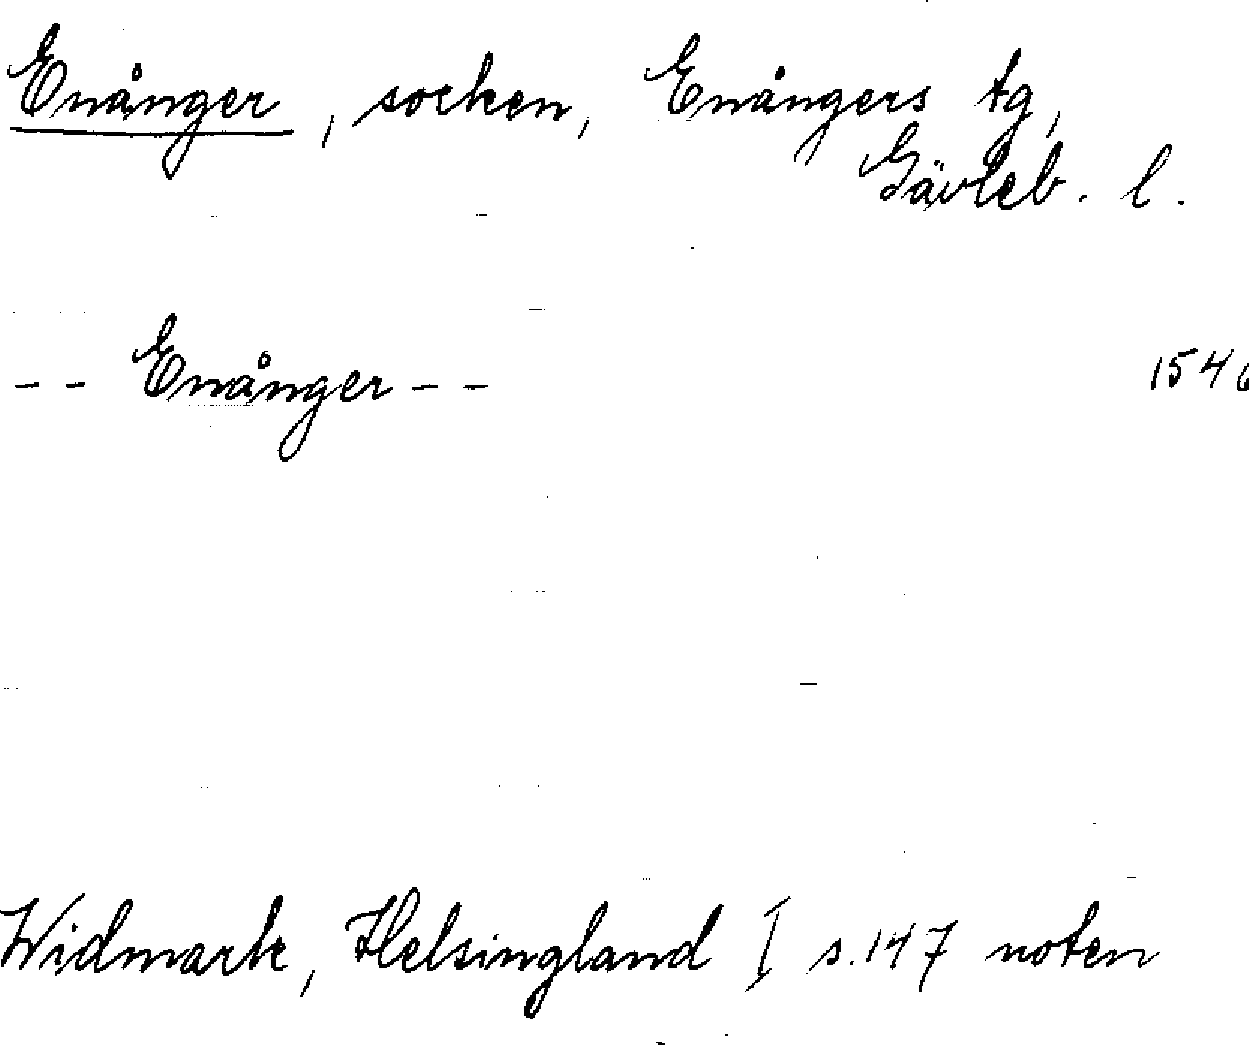 Enånger, socken, Enångers tg,
Gävleb. l.
-- Enånger -- 1546
Widmark, Helsingland I s. 147 noten